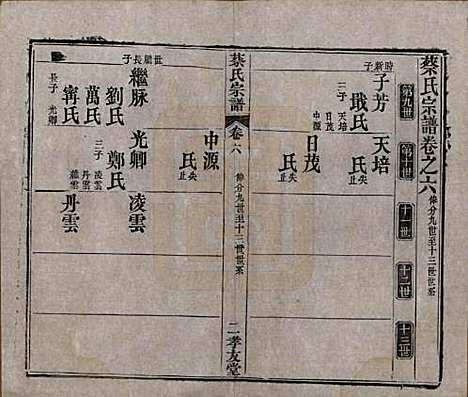 蔡氏宗譜卷之六 俸分九世至十三世世系
第九世
第十世
十一世
十二世
十三世
時新子
子芳
戢氏
一子 天培
天培
氏 失 止
日茂
中源
日茂
氏 失 止
中源
氏 失 止
蔡氏宗譜
卷六
俸分九世至十三世世系
二 孝友堂
世騰長子
繼脉
劉氏
萬氏
甯氏
長子 光卿
光卿
鄭氏
三子 凌雲
丹雲
凌雲
丹雲